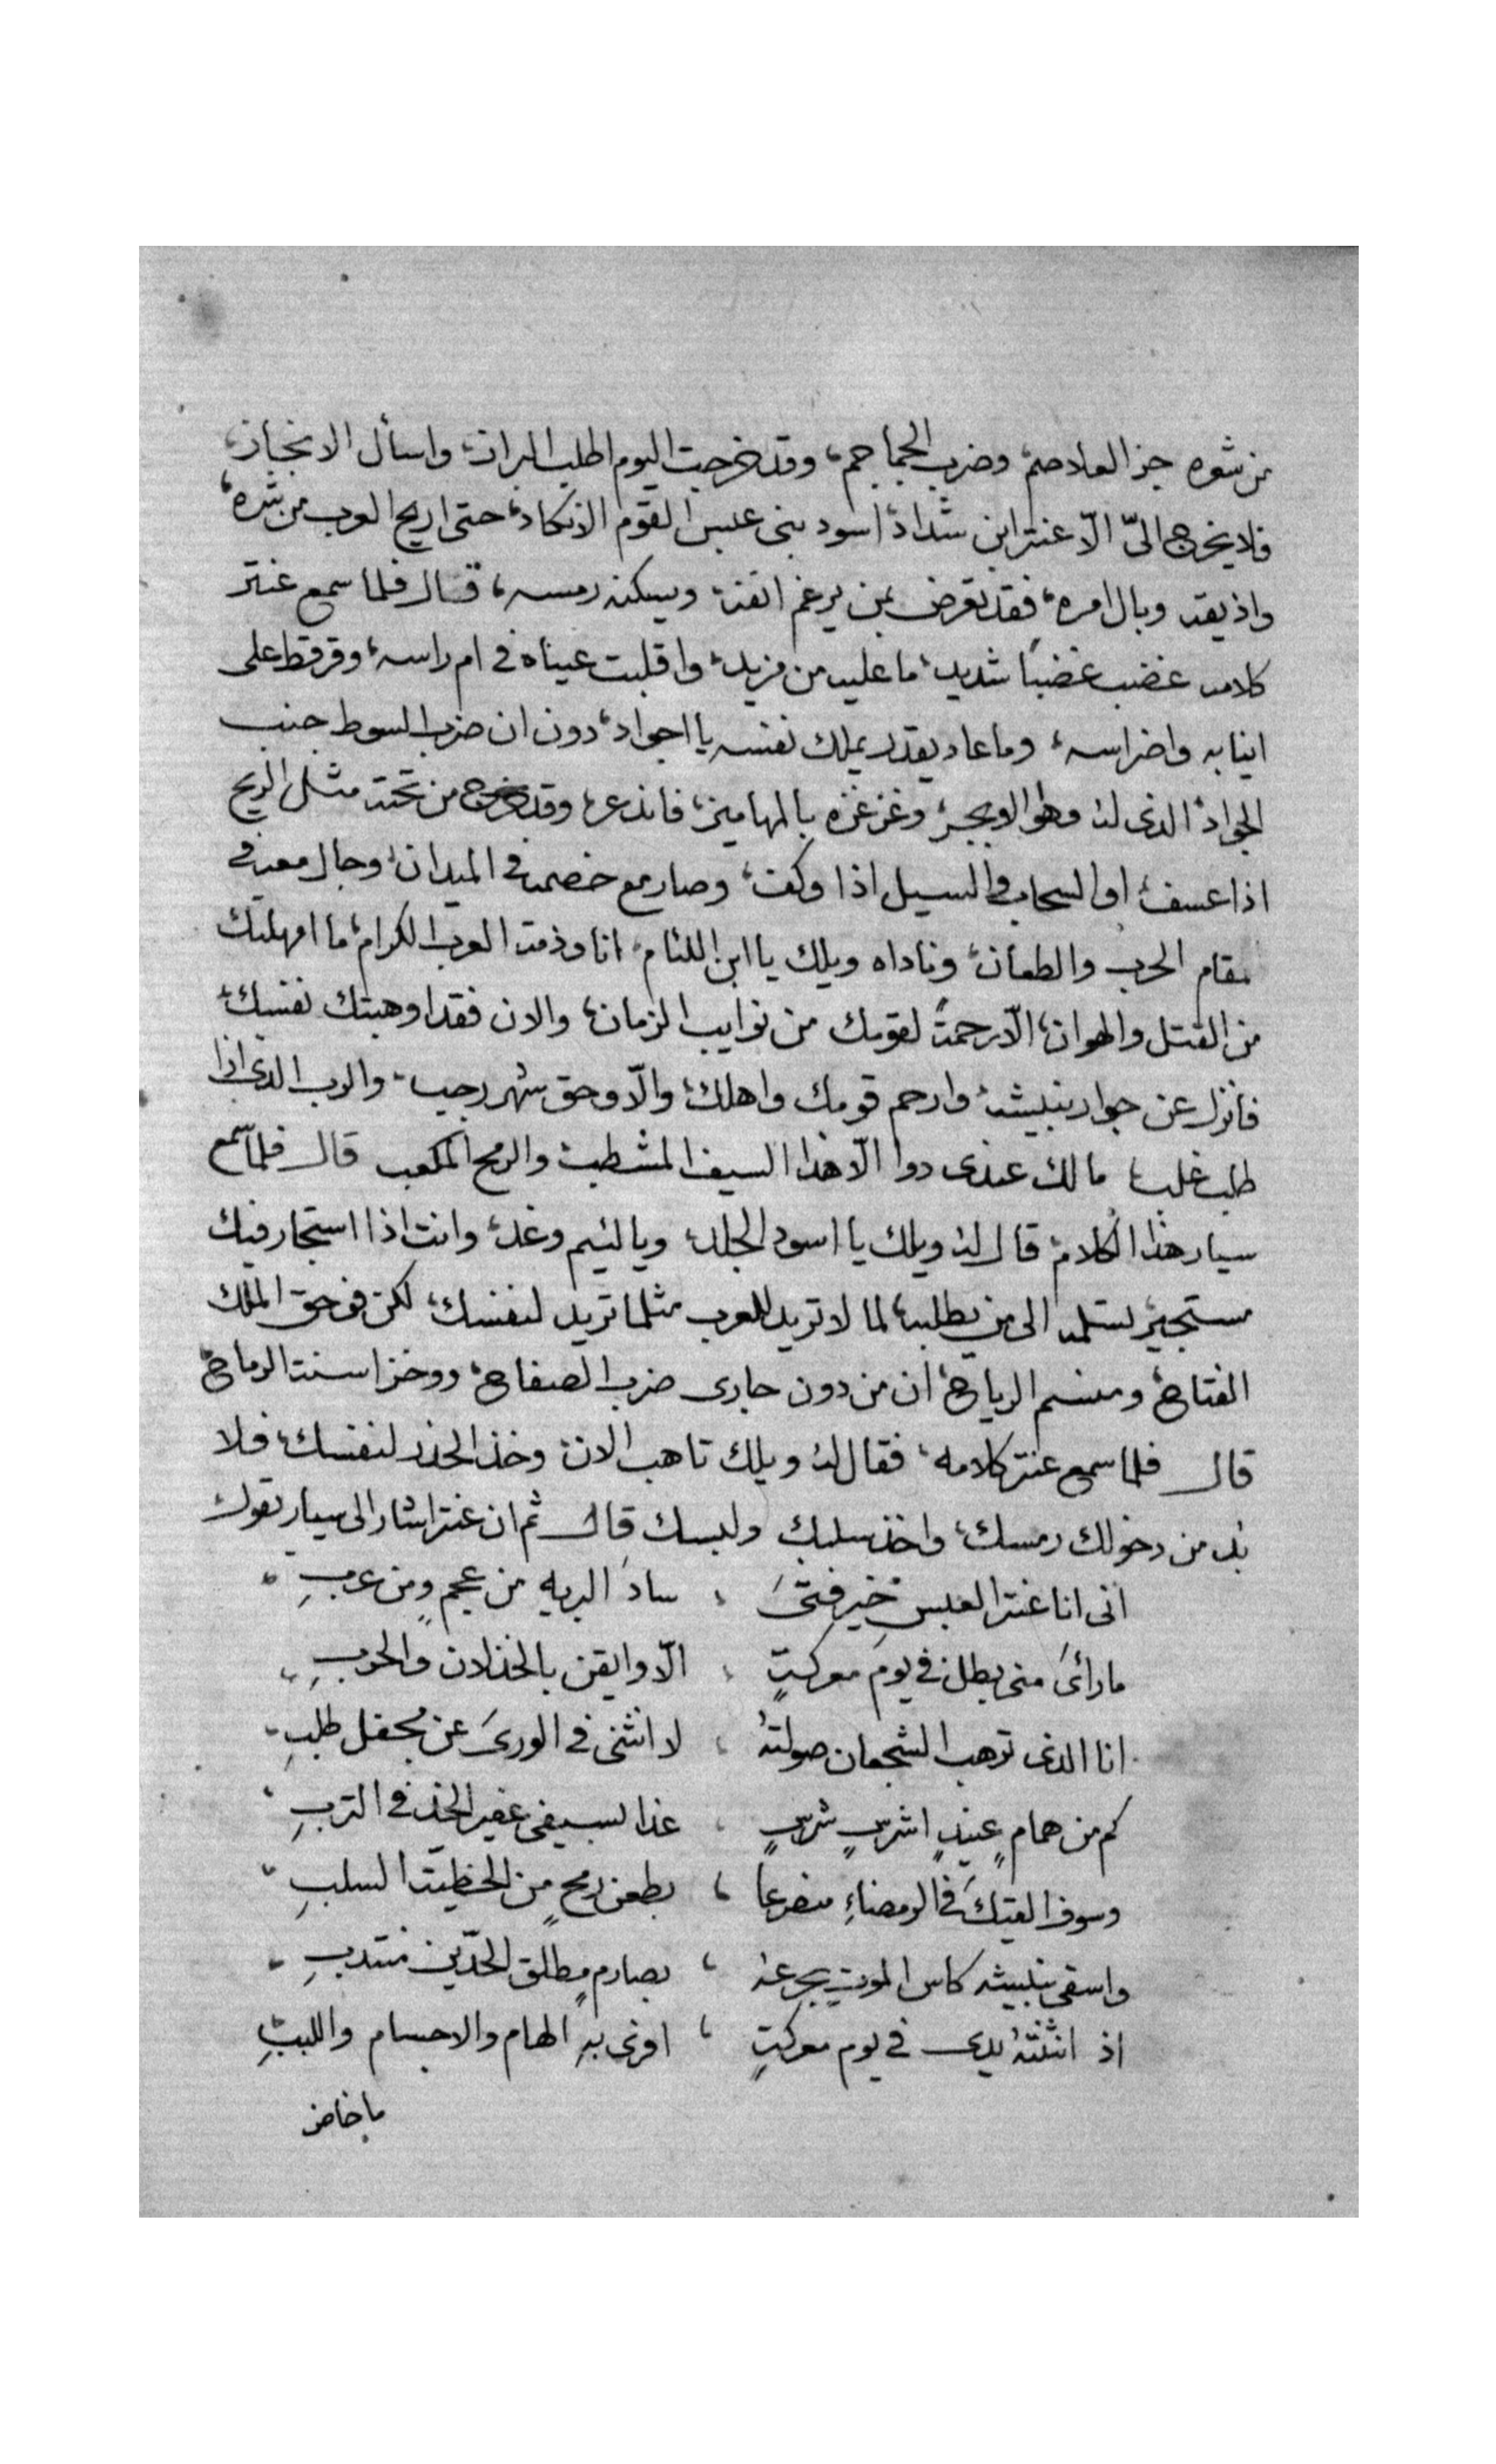 من شوره جز الغلاصم، وضرب الجماجم، وقد خرجت اليوم اطلب البراز، واسأل الانجاز،
فلا يخرج اليّ الّا عنتر ابن شداد، اسود بنى عبس القوم الانكاد، حتى اريح العرب من شره،
واذيقه وبال امره، فقد تعرض لمن يرغم انفه، ويسكنه رمسه، قال فلما سمع عنتر
كلامه غضب غضبًا شديد، ما عليه من مزيد، واقلبت عيناه في ام راسه، وقرقط على
انيابه واضراسه، وما عاد يقدر يملك نفسه يا اجواد، دون ان ضرب السوط جنب
الجواد، الذى له وهو الابجر، وغزغزه بالمهاميز، فانذعر، وقد خرج من تحته مثل الريح
اذا عسف، او السحاب والسيل اذا وكف، وصار مع خصمه في الميدان، وجال معه في
مقام الحرب والطعان، وناداه ويلك يا ابن اللئام، انا وذمة العرب الكرام، ما امهلتك
من القتل والهوان، الّا رحمةً لقومك من نوايب الزمان، والان فقد اوهبتك نفسك،
فانزل عن جوار بنبيشه، وارحم قومك واهلك، والّا وحق شهر رجب، والرب الذى اذا
طلب غلب، ما لك عندى دوا الّا هذا السيف المشطب، والرمح المكعب قال فلما سمع
سيار هذا الكلام، قال له ويلك يا اسود الجلد، ويا لئيم وغد، وانت اذا استجار فيك
مستجير تسلمه الى من يطلبه، لما لا تريد للعرب مثلما تريد لنفسك، لكن فوحق الملك
الفتاح، ومنسم الرياح، ان من دون جارى ضرب الصفاح، ووخز اسنة الرماح،
قال فلما سمع عنتر كلامه، فقال له ويلك تاهب الان، وخذ الحذر لنفسك، فلا
بد من دخولك رمسك، واخذ سلبك ولبسك قال ثم ان عنتر اشار الى سيار يقول
انى انا عنتر العبسى خير فتىً ، سادَ البريه من عجمٍ ومن عربِ
ما رأىَ منى بطل في يوم معركةٍ ، الّا وايقن بالخذلان والحربِ
انا الذى ترهب الشجعان صولتهُ ، لا انثنى في الورىَ عن جحفل طلبِ
كم من همامٍ عنيدٍ اشرسٍ شرسٍ ، غدا بسيفى عفير الخدّ في التربِ
وسوف القيكَ في الرمضاءِ منصرعا ، بطعن رمحٍ من الخطيّة السلبِ
واسقى بنبيشه كاس الموتِ يجرعهُ ، بصارمٍ مطلق الحدّين منتدبِ
اذ انثنتهُ يدى في يوم معركةٍ ، افرى بهِ الهام والاجسام واللببِ
ما خاض